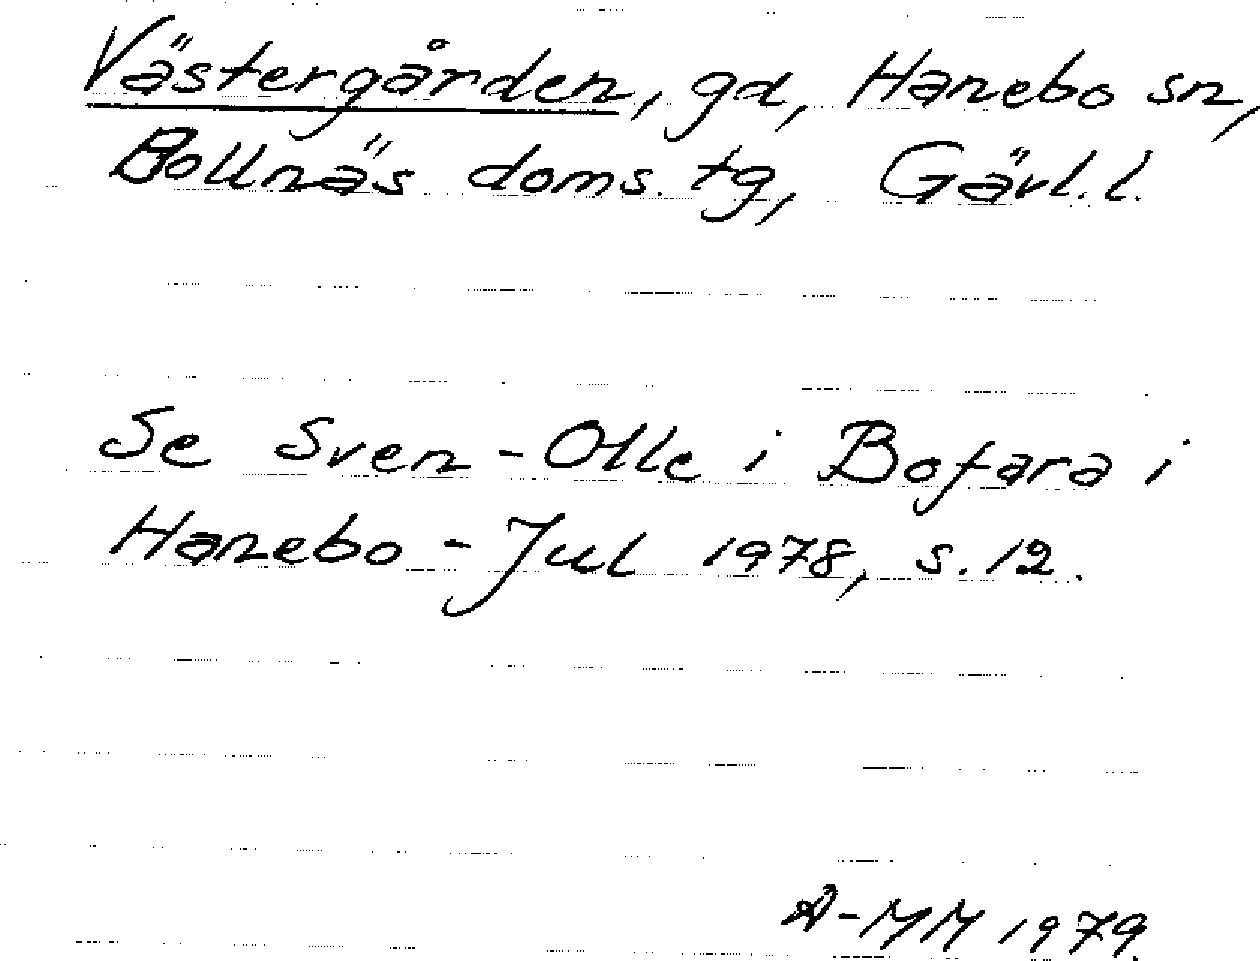 Västergården, gd, Hanebo sn,
Bollnäs doms. tg, Gävl. l.
Se Sven-Olle i Bofara i
Hanebo-Jul 1978, s. 12.
A-MM 1979.